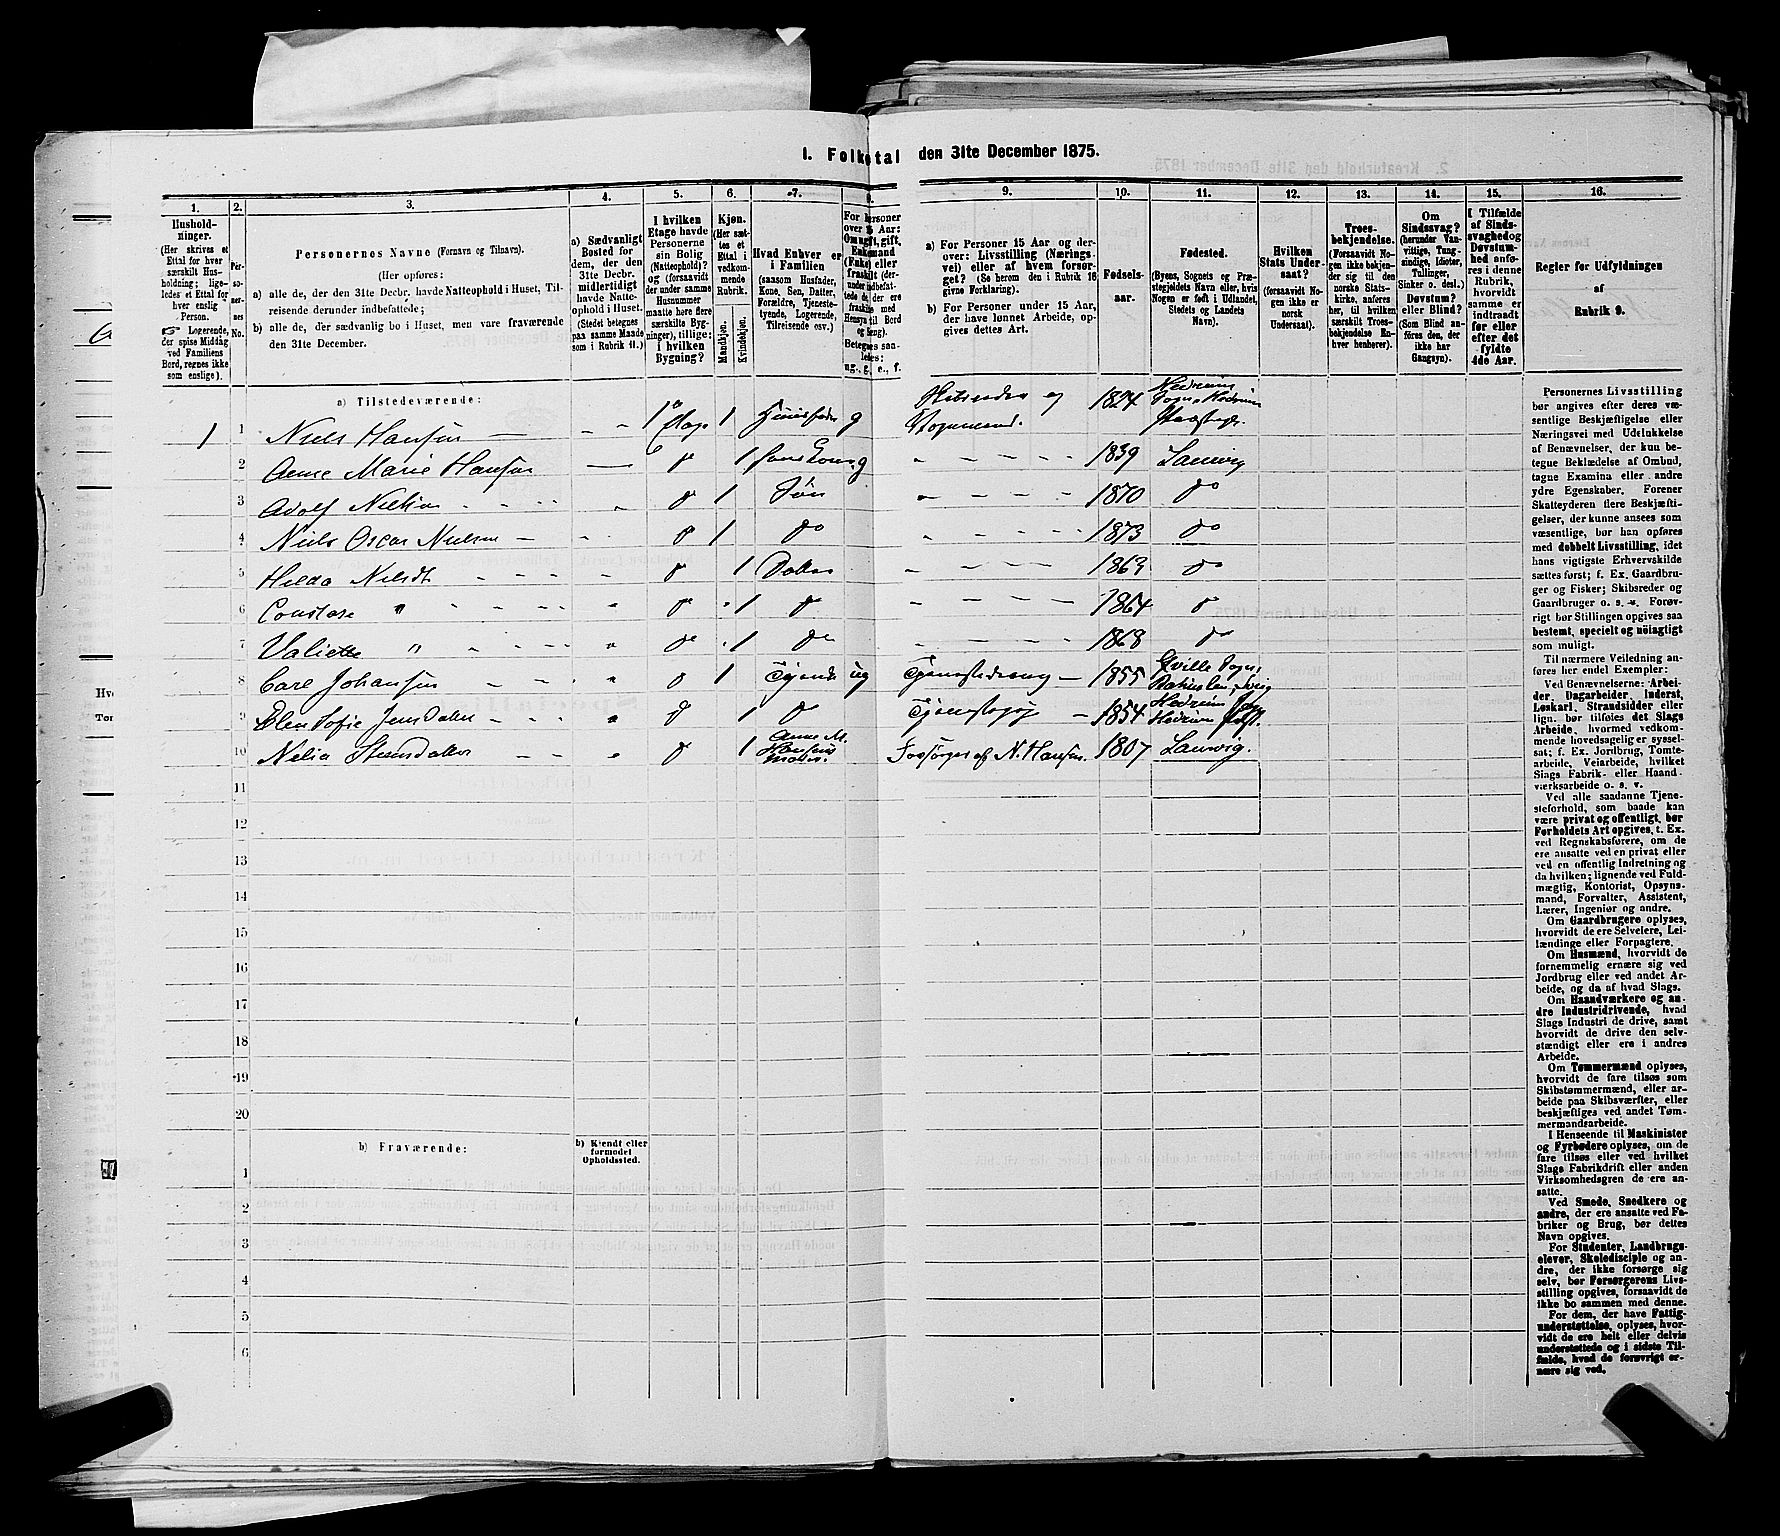 1. Folketal den 31te December 1875.
1.
Hushold-
ninger.
(Her skrives et
Ettal for hver
særskilt Hus-
holdning; lige-
ledes et Ettal for
hver enslig
Person.
Logerende,
der spise Middag
ved Familiens
Bord, regnes ikke
som enslige).
2.
Per-
so-
ner-
nes
No.
3.
Personernes Navne (Fornavn og Tilnavn).
(Her opføres:
a) alle de, der den 31te Decbr. havde Natteophold i Huset, Til-
reisende derunder indbefattede;
b) alle de, der sædvanlig bo i Huset, men vare fraværende
den 31te December.
4.
a) Sædvanligt
Bosted for
dem, der den
31te Decbr.
midlertidigt
havde Natte-
ophold i Huset.
(Stedet betegnes
paa samme Maade
som i Rubrik 11.)
5.
I hvilken
Etage havde
Personerne
sin Bolig
(Natteophold)?
og (forsaavidt
der under samme
Husnummer
maatte høre flere
særskilte Byg-
ninger), tillige:
i hvilken
Bygning?
6.
Kjøn.
(Her sæt-
tes et
Ettal i
vedkom-
mende
Rubrik.
Mandkjøn.
Kvindekjøn.
7.
Hvad Enhver er
i Familien
(saasom Husfader,
Kone, Søn, Datter,
Forældre, Tjeneste-
tyende, Logerende,
Tilreisende osv.)
9.
a) For Personer 15 Aar og der-
over: Livsstilling (Nærings-
vei) eller af hvem forsør-
get? (Se herom den i Rubrik 16
givne Forklaring).
b) For Personer under 15 Aar,
der have lønnet Arbeide, op-
gives dettes Art.
10.
Fødsels-
aar.
11.
Fødested.
(Byens, Sognets og Præ-
stegjeldets Navn eller, hvis
Nogen er født i Udlandet,
Stedets og Landets
Navn).
12.
Hvilken
Stats Under-
saat?
(forsaavidt No-
gen ikke er
norsk
Undersaat).
13.
Troes-
bekjendelse.
(Forsaavidt No-
gen ikke bekjen-
der sig til den
norske Stats-
kirke, anføres
her, til hvilken
særskilt Troes-
bekjendelse En-
hver henhører).
14.
Om
Sindssvag?
(herunder Van-
vittige, Tung-
sindige, Idioter,
Tullinger,
Sinker o. desl.)
Døvstum?
eller Blind?
(Som Blind an-
føres den, der
ikke har
Gangsyn).
15.
I Tilfælde
af Sinds-
svaghed og
Døvstum-
hed anfø-
res i denne
Rubrik,
hvorvidt
samme er
indtraadt
før eller
efter det
fyldte
4de Aar.
16.
Regler for Udfyldningen
af
Rubrik 9.
a) Tilstedeværende:
1 1 Niels Hansen 1ste Etage 1 Huusfader g Skibsreder og Vognmand. 1824 Hedrum Sogn Hedrum Præstegj.
2 Anne Marie Hansen do 1 hans Kone g 1839 Laurvig
3 Adolf Nielsen do 1 Søn 1870 do
4 Niels Oscar Nielsen do 1 do 1873 do
5 Hilda Nielsdt do 1 Datter 1863 do
6 Constase " do 1 do 1864 do
7 Valiette " do 1 do 1868 do
8 Carl Johansen do 1 Tjende ug Tjenestedreng 1855
9 Elen Sofie Jensdatter do 1 do Tjenestepige 1854 Hedrum Sogn Hedrum Præst.
10 do 1 Anne M. Hansens moder. Forsørges af N. Hansen. 1807 Laurvig.
11
12
13
14
15
16
17
18
19
20
b) Fraværende:
b) Kjendt eller
formodet
Opholdssted.
1
2
3
4
5
6
Personernes Livsstilling
bør angives efter deres væ-
sentlige Beskjæftigelse eller
Næringsvei med Udelukkelse
af Benævnelser, der kun be-
tegne Beklædelse af Ombud,
tagne Examina eller andre
ydre Egenskaber. Forener
Skatteyderen flere Beskjæfti-
gelser, der kunne ansees som
væsentlige, bør han opføres
med dobbelt Livsstilling, idet
hans vigtigste Erhvervskilde
sættes først; f. Ex. Gaardbru-
ger og Fisker; Skibsreder og
Gaardbruger o. s. v. Forøv-
rigt bør Stillingen opgives saa
bestemt, specielt og nöiagtigt
som muligt.
Til nærmere Veiledning an-
føres her endel Exempler:
Ved Benævnelserne: Arbei-
der, Dagarbeider, Inderst,
Løskarl, Strandsidder eller
lign. bør tilføies det Slags
Arbeide, hvormed vedkom-
mende hovedsagelig er syssel-
sat; f. Ex. Jordbrug, Tomte-
arbeide, Veiarbeide, hvilket
Slags Fabrik- eller Haand-
værksarbeide o. s. v.
Ved alle saadanne Tjene-
steforhold, som baade kan
være privat og offentligt, bør
Forholdets Art opgives, t. Ex.
ved Regnskabsførere, om de
ere ansatte ved en privat eller
ved en offentlig Indretning og
da hvilken; lignende ved Fuld-
mægtig, Kontorist, Opsyns-
mand, Forvalter, Assistent,
Lærer, Ingeniør og andre.
Om Gaardbrugere oplyses,
hvorvidt de ere Selveiere, Lei-
lændinge eller Forpagtere.
Om Husmænd, hvorvidt de
fornemmelig ernære sig ved
Jordbrug eller ved andet Ar-
beide, og da af hvad Slags.
Om Haandværkere og an-
dre Industridrivende, hvad
Slags Industri de drive, samt
hvorvidt de drive den selv-
stændigt eller ere i andres
Arbeide.
Om Tømmermænd oplyses,
hvorvidt de fare tilsøs som
Skibstømmermænd, eller ar-
beide paa Skibsværfter, eller
beskjæftiges ved andet Tøm-
mermandsarbeide.
I Henseende til Maskinister
og Fyrbødere oplyses, om de
fare tilsøs eller ved hvilket
Slags Fabrikdrift eller anden
Virksomhedsgren de ere an-
satte.
Ved Smede, Snedkere og
andre, der ere ansatte ved Fa-
briker og Brug, bør dettes
Navn opgives.
For Studenter, Landbrugs-
elever, Skoledisciple og an-
dre, der ikke forsørge sig
selv, bør Forsørgerens Livs-
stilling opgives, forsaavidt de
ikke bo sammen med denne.
For dem, der have Fattig-
understøttelse, oplyses, hvor-
vidt de ere helt eller delvis
understøttede og i sidste Til-
fælde, hvad de forøvrigt er-
nære sig ved.